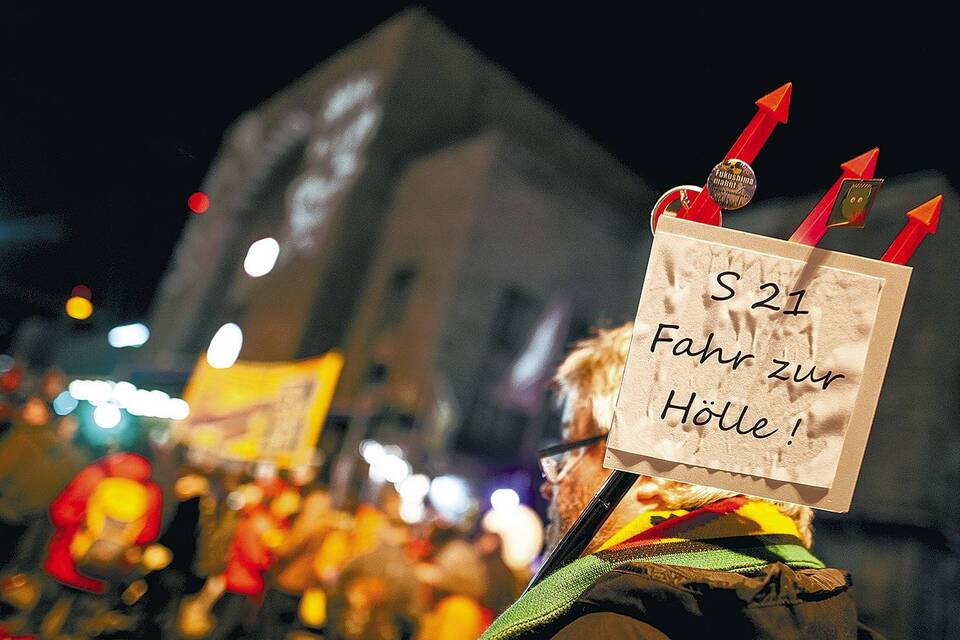 Fukushima
mahnt
S 21
Fahr zur
Hölle !